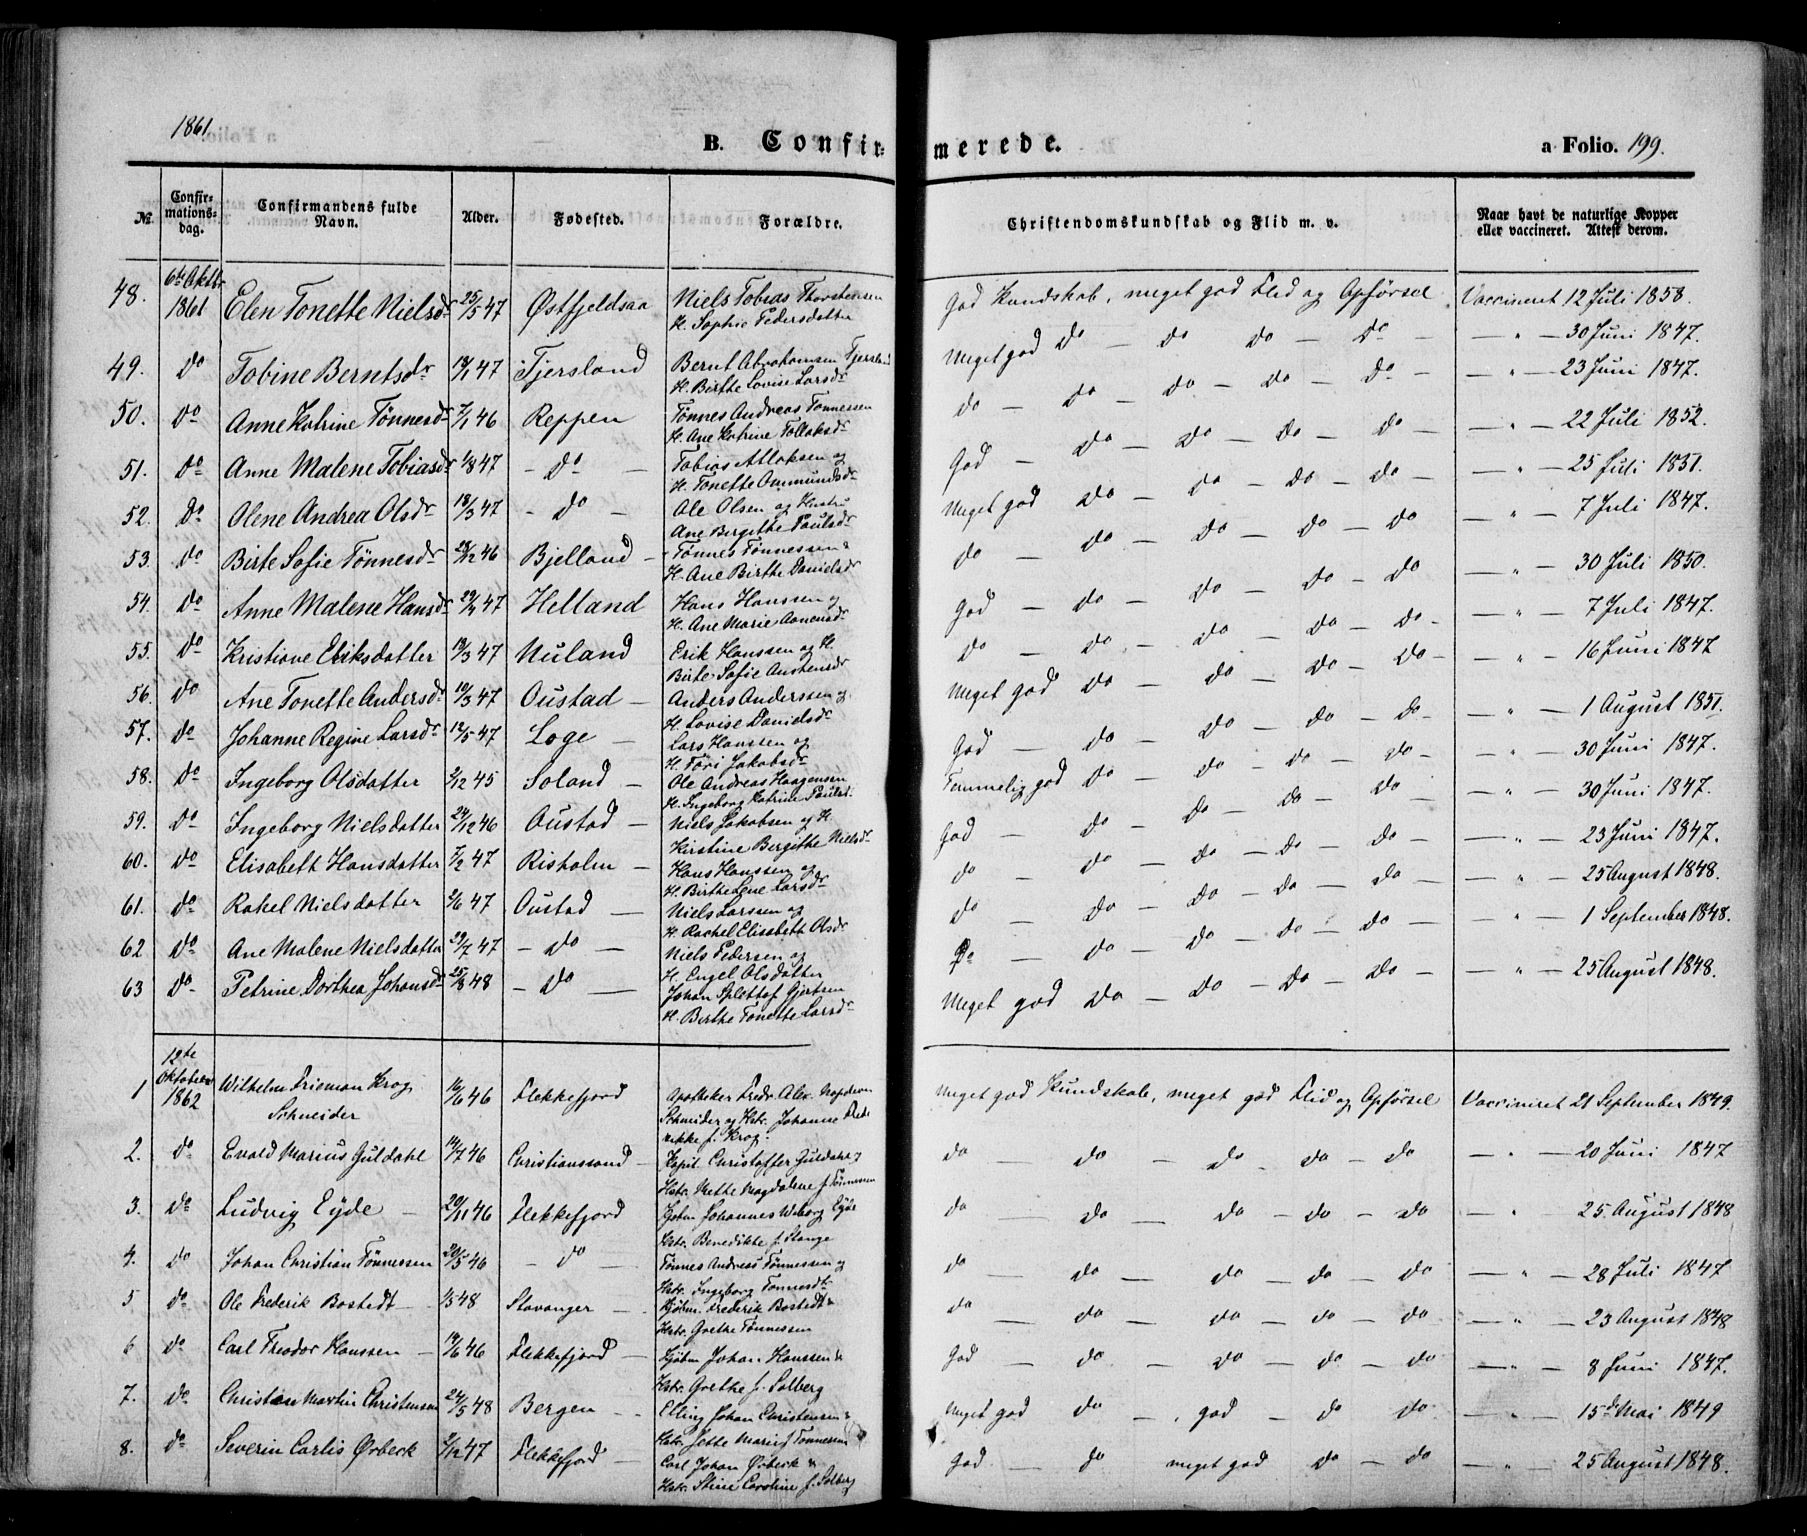 1861.
B. Confirmerede.
a Folio. 199.
No. Confirmationsdag. Confirmandens fulde Navn. Alder. Fødested. Forældre. Christendomskundskab og Flid m. v. Naar havt de naturlige Kopper eller vaccineret. Attest derom.
48. 6te Oktbr 1861 Elen Tonette Nielsdr 25/5 47 Østfjeldsaa Niels Tobias Thorstensen H. Sophie Pedersdatter God Kundskab, meget god Flid og Opførsel Vaccineret 12 Juli 1858.
49. do Tobine Berntsdr 13/1 47 Tjersland Bernt Abrahamsen Tjersland H. Birthe Lovise Larsdr Meget god do — do do — do — — " — 30 Juni 1847.
50. do Anne Katrine Tønnesdr 7/1 46 Reppen Tønnes Andreas Tønnessen H. Ane Katrine Tollaksdr do — do — do — do — do — " — 23 Juni 1847.
51. do Anne Malene Tobiasdr 1/8 47 — do — Tobias Atlaksen og H. Tonette Ommundsdr God — do — do — do — do — — " — 22 Juli 1852.
52. do Olene Andrea Olsdr 18/3 47 - do - Ole Olsen og Hustru Ane Bergithe Paulsdr Meget god do — do — do — do — — " — 25 Juli 1851.
53. do Birte Sofie Tønnesdr 28/12 46 Bjelland — Tønnes Tønnessen & H. Ane Birthe Danielsdr do — do — do — do — do — " — 7 Juli 1847.
54. do Anne Malene Hansdr 47 Helland Hans Hanssen og H. Ane Marie Aanensdr God — do — do — do — do — " — 30 Juli 1850.
55. do Kristiane Eriksdatter 19/3 47 Nuland Erik Hanssen og H. Birte Sofie Austensdr do — do — do — do — do - — " — 7 Juli 1847.
56. do Ane Tonette Andersdr 10/3 47 Oustad — Anders Anderssen og H. Lovise Danielsdr Meget god do — do — do — do — — " — 16 Juni 1847
57. do Johanne Regine Larsdr 12/5 47 Loge — Lars Hanssen og H. Tóri Jakobsdr God — do — do — do — do — " — 1 August 1851.
58. do Ingeborg Olsdatter 2/12 45 Soland — Ole Andreas Haagensen H. Ingeborg Katrine Paulsd. Temmelig god do — do — do — do — — " — 30 Juni 1847.
59. do Ingeborg Nielsdatter 24/12 46 Oustad — Niels Jakobsen og H. Kirstine Bergithe Nielsdt God — do — do — do — do — " — 30 Juni 1847.
60. do Elisabeth Hansdatter 7/2 47 Risholm — Hans Hanssen og H. Birthe Lene Larsdr do — do — do — do — do — " — 23 Juni 1847.
61. do Rakel Nielsdatter 2/6 47 Oustad — Niels Larssen og H. Rachel Elisabeth Olsdr do — do — do — do — do — " — 25 August 1848.
62 do Ane Malene Nielsdatter 29/7 47 — do — Niels Pedersen og H. Engel Olsdatter Do — do — do — do — do — " — 1 September 1848.
63 do Petrine Dorthea Johansd 25/8 48 — do — Johan Splettof Gjertsen H. Birthe Tonette Larsdr Meget god do — do — do — do — " — 25 August 1848.
1 12te Oktober 1862 Wilhelm Frieman Krog Schneider 16/6 46 Flekkefjord Apotheker Fredr. Alex. Napoleon Schneider og Hstr. Johanne Frederikke f. Krog. Meget god Kundskab, meget god Flid og Opførsel Vaccineret 21 September 1849.
2. do Evald Marius Guldahl 14/7 46 Christianssand — Kapit. Christoffer Guldahl & Hstr. Mette Magdalene f. Tønnessen do — do — do — do — do — " — 20 Juni 1847
3. do Ludvig Eyde — 20/11 46 Flekkefjord Kjøbm Johannes Weborg Eyde Hstr. Benedikte f. Stange do — do — do — do — do — " — 25 August 1848
4. do Johan Christian Tønnessen 20/5 46 — do — Tønnes Andreas Tønnessen og Hstr. Ingeborg Tønnesdt. do — do — do — do — do — " — 28 Juli 1847
5 do Ole Frederik Bostedt — 1/3 48 Stavanger — Kjøbm. Frederik Bostedt & Hstr. Grethe Tønnessen do — do — do — do — do — " — 23 August 1848
6 do Carl Theodor Hanssen — 14/6 46 Flekkefjord — Kjøbm Johan Hanssen & Hstr. Grethe f. Solberg God — do — do — do — do — " — 8 Juni 1847.
7. do Christian Martin Christensen 24/5 48 Bergen — Elling Johan Christensen & Hstr. Jette Marie f. Tønnessen Meget god do — god — do do — " — 15de Mai 1849
8. do Severin Carlis Ørbeck 2/12 47 Flekkefjord — Carl Johan Ørbeck & Hstr. Stine Caroline f. Solberg God — do meget god do — do — " — 25 August 1848.